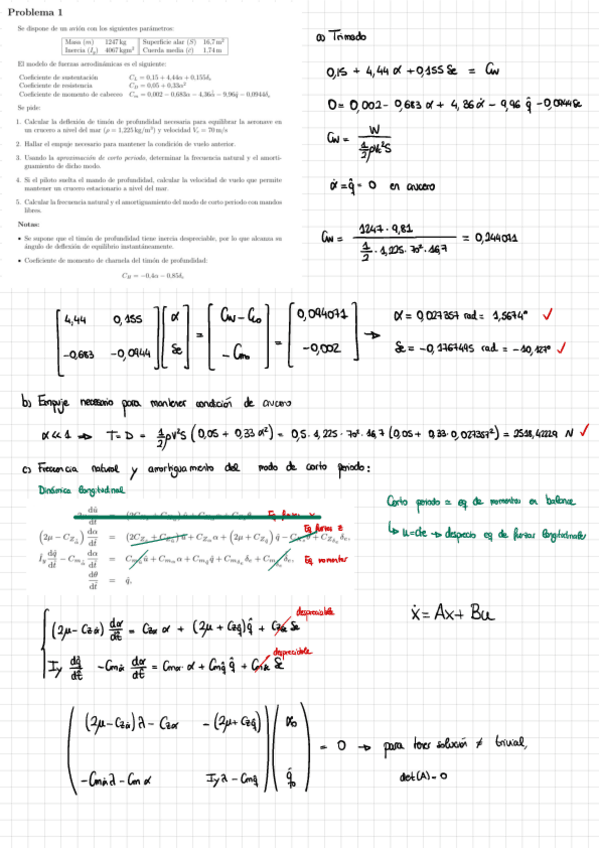 Problema 1
Se dispone de un avión con los siguientes parámetros:
Masa (m) 1247 kg Superficie alar (S) 16,7 m²
Inercia (I_y) 4067 kgm² Cuerda media (c̄) 1.74 m
El modelo de fuerzas aerodinámicas es el siguiente:
Coeficiente de sustentación C_L = 0,15 + 4,44α + 0,155δ_e
Coeficiente de resistencia C_D = 0,05 + 0,33α²
Coeficiente de momento de cabeceo C_m = 0,002 − 0,683α − 4,36α̂̇ − 9,96q̂ − 0,0944δ_e
Se pide:
1. Calcular la deflexión de timón de profundidad necesaria para equilibrar la aeronave en
un crucero a nivel del mar (ρ = 1,225 kg/m³) y velocidad V_e = 70 m/s
2. Hallar el empuje necesario para mantener la condición de vuelo anterior.
3. Usando la aproximación de corto periodo, determinar la frecuencia natural y el amorti-
guamiento de dicho modo.
4. Si el piloto suelta el mando de profundidad, calcular la velocidad de vuelo que permite
mantener un crucero estacionario a nivel del mar.
5. Calcular la frecuencia natural y el amortiguamiento del modo de corto periodo con mandos
libres.
Notas:
• Se supone que el timón de profundidad tiene inercia despreciable, por lo que alcanza su
ángulo de deflexión de equilibrio instantáneamente.
• Coeficiente de momento de charnela del timón de profundidad:
C_H = −0,4α − 0,85δ_e
a) Trimado
0,15 + 4,44 α + 0,155 δe = Cw
0 = 0,002 − 0,683 α + 4,36 α̇ − 9,96 q̂ − 0,0944 δe
Cw = W / (½ρV²S)
α̇ = q̂ = 0 en crucero
Cw = 1247 · 9,81 / (½ · 1,225 · 70² · 16,7) = 0,244071
[4,44 0,155; −0,683 −0,0944] [α; δe] = [Cw − CL0; −Cm0] = [0,094071; −0,002] → α = 0,027357 rad = 1,5674° ✓
δe = −0,1767495 rad = −10,127° ✓
b) Empuje necesario para mantener condición de crucero
α << 1 ⇒ T = D = ½ρV²S (0,05 + 0,33 α²) = 0,5 · 1,225 · 70² · 16,7 (0,05 + 0,33 · 0,027357²) = 2518,42229 N ✓
c) Frecuencia natural y amortiguamiento del modo de corto periodo:
Dinámica longitudinal
Corto periodo ≃ eq de momentos en balance
↳ u = cte → desprecio eq de fuerzas longitudinales
(2μ − C_Zα̇) dα/dt̂ = (2C_Zs + C_Zu) û + C_Zα α + (2μ + C_Zq̂) q̂ − C_Xs θ + C_Zδe δe, Eq fuerzas z
Î_y dq̂/dt̂ − C_mα̇ dα/dt̂ = C_mû û + C_mα α + C_mq̂ q̂ + C_mδe δe + C_mδ̇e δ̇e, Eq momentos
dθ/dt̂ = q̂.
(2μ − Czα̇) dα/dt̂ = Czα α + (2μ + Czq̂) q̂ + Czδe δe despreciable
Iy dq̂/dt̂ − Cmα̇ dα/dt̂ = Cmα α + Cmq̂ q̂ + Cmδe δe despreciable
ẋ = Ax + Bu
[(2μ − Czα̇) λ − Czα −(2μ + Czq̂); −Cmα̇ λ − Cm α Iy λ − Cmq̂] [α0; q̂0] = 0 → para tener solución ≠ trivial,
det(A) = 0